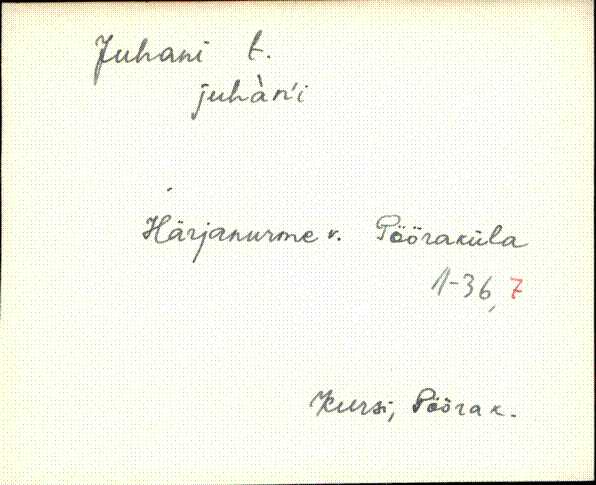 Juhani t.
juhàǹi
Härjanurme v. Pööraküla
1-36, 7
Kursi, Pöörak.